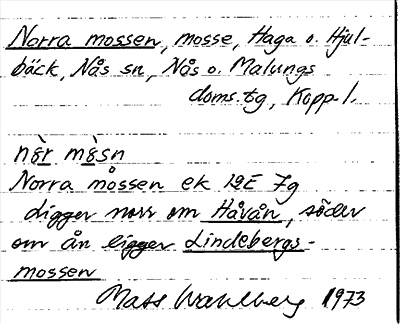 Norra mossen, mosse, Haga o. Hjul-
bäck, Nås sn, Nås o. Malungs
doms.tg, Kopp.l.
Norra mossen ek 12E 7g
digger norr om Håvån, söder
om ån ligger Lindebergs-
mossen
Mats Wahlberg 1973